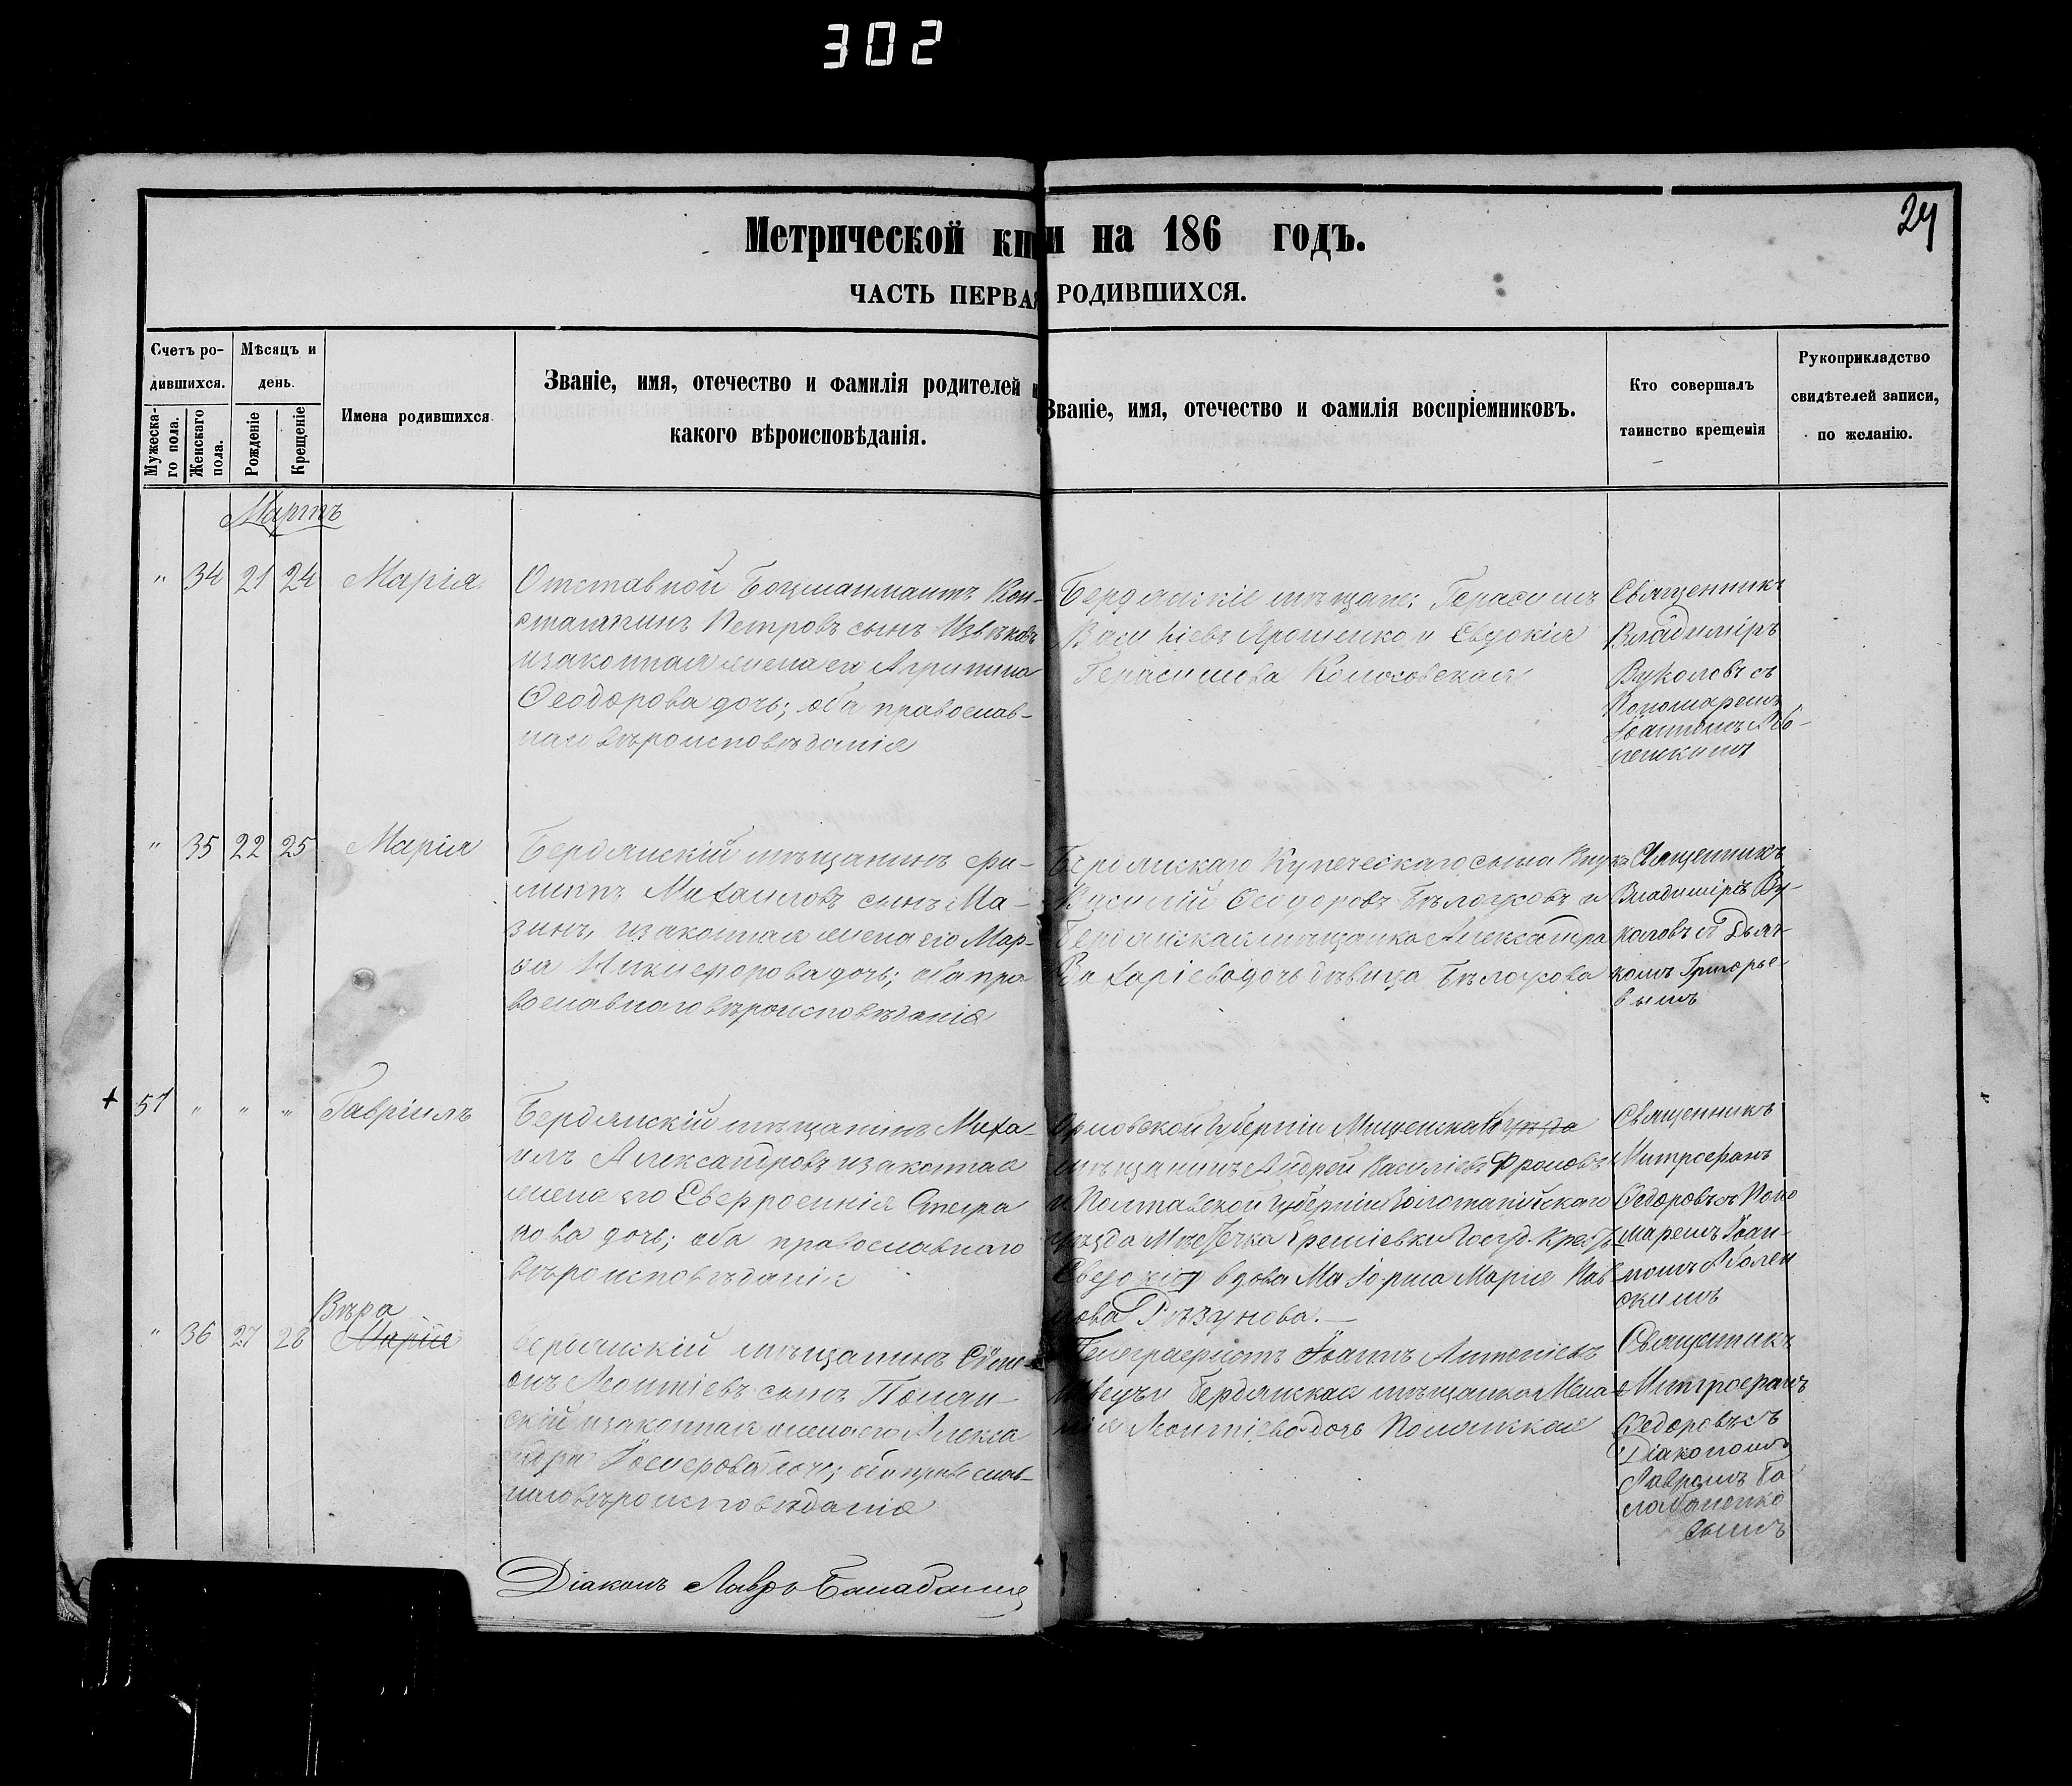 302
24
Метрической книги на 186 годъ.
ЧАСТЬ ПЕРВАЯ РОДИВШИХСЯ.
Счетъ ро-
дившихся.
Мужеска-
го пола.
Женскаго
пола.
Мѣсяцъ и
день.
Рожденіе
Крещеніе
Имена родившихся
Званіе, имя, отечество и фамилія родителей и
какого вѣроисповѣданія.
Званіе, имя, отечество и фамилія воспріемниковъ.
Кто совершалъ
таинство крещенія
Рукоприкладство
свидѣтелей записи,
по желанію.
Мартъ
" 34 21 24 Марія
Отставной Боцманматъ Кон-
стантинъ Петровъ сынъ Извѣковъ
изаконная жена его Агрипина
Феодорова дочь; оба православ-
наго вѣроисповѣданія
Бердянскіе мѣщане: Герасимъ
Василіевъ Ярошенко и Евдокія
Герасимова Колосовская
Священникъ
Владиміръ
Вуколовъ съ
Пономаремъ
" 35 22 25 Марія
Бердянскій мѣщанинъ Фи-
липпъ Михаиловъ сынъ Ма-
зинъ, изаконная жена его Мар-
фа Никифорова дочь; оба пра
вославнаго вѣроисповѣданія
Бердянскаго Купеческаго сына Внукъ
Василій Феодоровъ Бѣлоусовъ и
Бердянская мѣщанка Александра
Захаріева дочь дѣвица Бѣлоусова
Священникъ
Владиміръ Ву-
коловъ съ Дьяч-
комъ Григорье-
вымъ
+ 51 " " " Гавріилъ
Бердянскій мѣщанинъ Миха-
илъ Александровъ изаконная
жена его Евфросинія Спира
нова дочь; оба православнаго
вѣроисповѣданія
Орловской Губерніи Мценска уѣзда
мѣщанинъ Андрей Василіевъ Фроловъ
и Полтавской губерніи Золотанійскаго
уѣзда Мѣстечка
вдова Маіорша Марія Пав
лова Рѣзунова.—
Священникъ
Митрофанъ
Федоровъ съ Поно
маремъ Іоан-
номъ Аболен
скимъ
" 36 27 28 Вѣра
Марія
Бердянскій мѣщанинъ Сѵме-
онъ Леонтіевъ сынъ Полян-
скій изаконная жена его Алекса
ндра дочь; оба православ-
наго вѣроисповѣданія
Телеграфистъ Іоаннъ Антоніевъ
Швецъ и Бердянская мѣщанка Мела-
нія Леонтіева дочь Полянская
Священникъ
Митрофанъ
Федоровъ съ
Діакономъ
Лавромъ Ба
лабаненко
вымъ
Діаконъ Лавръ